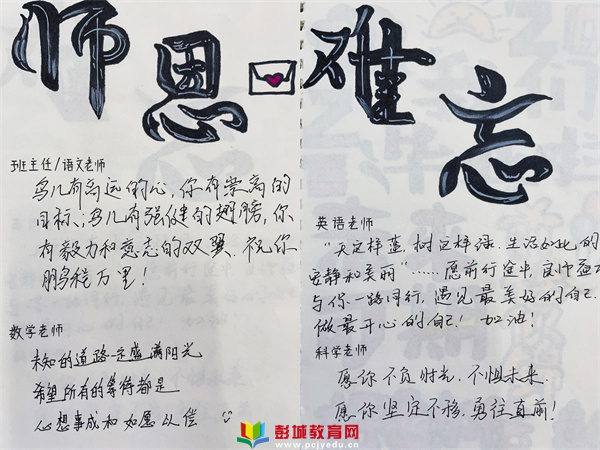 师恩
班主任/语文老师
鸟儿有高远的心,你有崇高的
目标;鸟儿有强健的翅膀,你
有毅力和意志的双翼、祝你
鹏程万里!
数学老师
未知的道路一定盛满阳光
希望所有的等待都是
心想事成和如愿以偿
难忘
英语老师
"天这样蓝,树这样绿,生活如此的
安静和美丽"……愿前行途中,良师益友
与你一路同行,遇见最美好的自己
做最开心的自己!加油!
科学老师
愿你不负时光,不惧未来.
愿你坚定不移,勇往直前!
彭城教育网
www.pcjyedu.cn